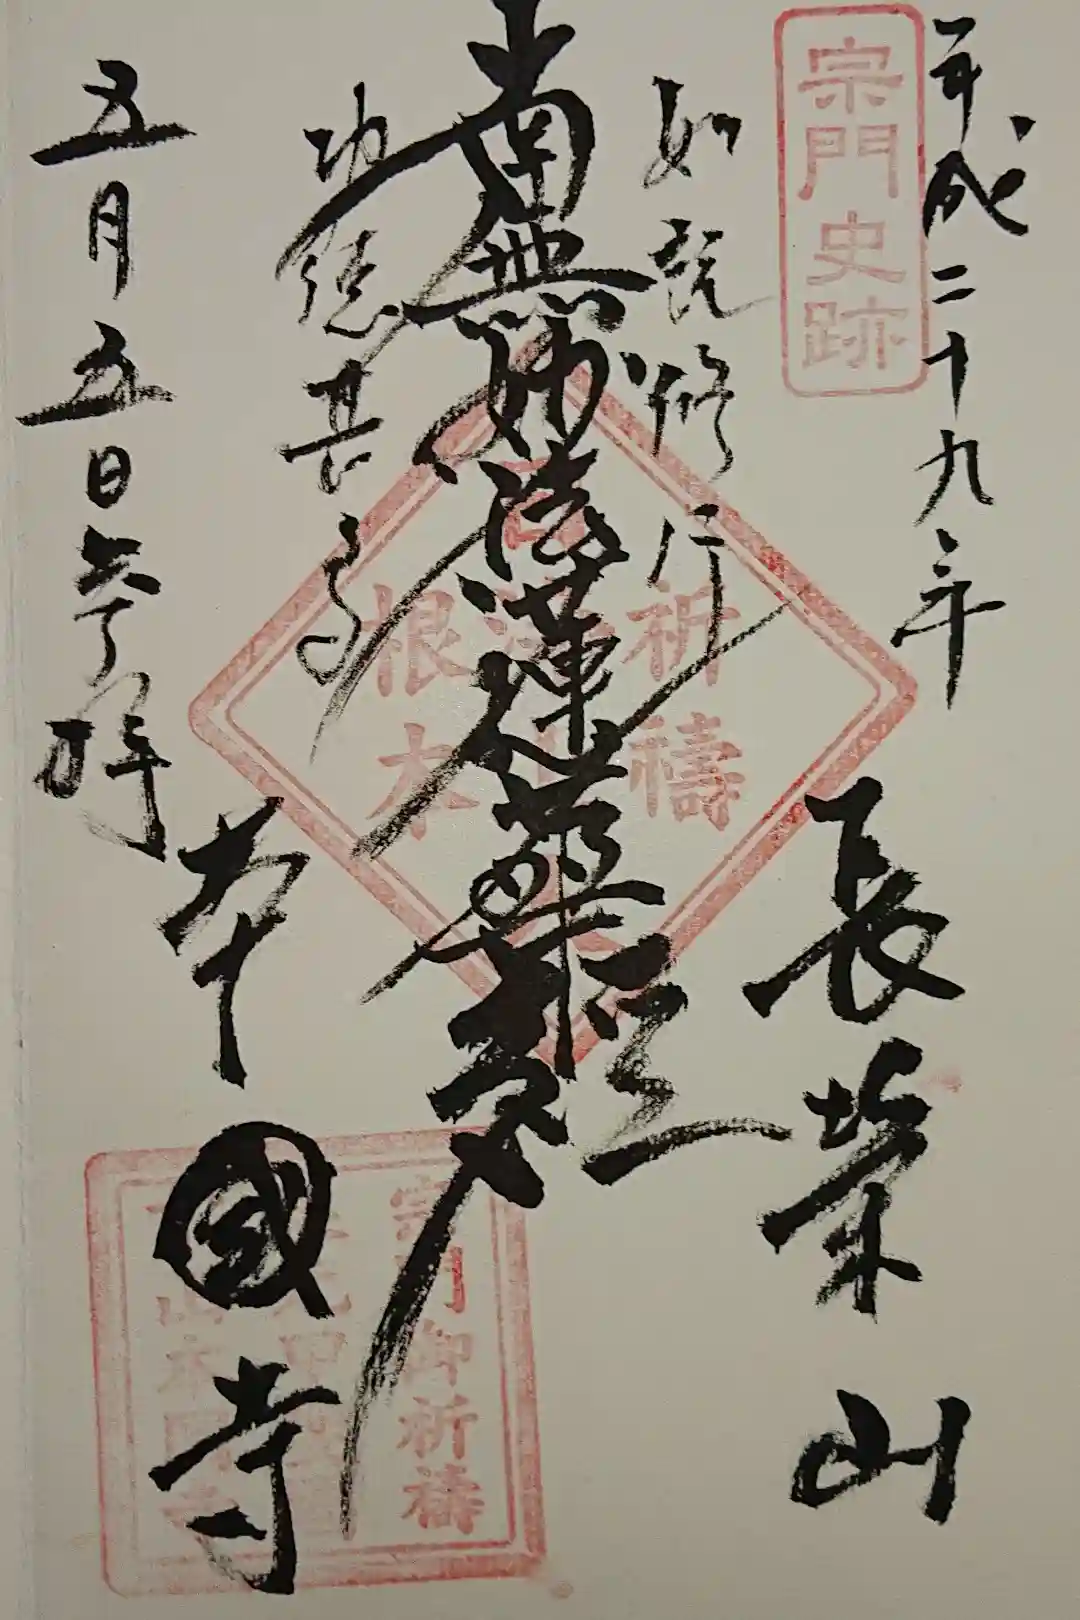 平成二十九年
宗門史跡
長榮山
如説修行
南無妙法蓮華経
功徳甚多
五月五日参拝
本國寺
祈禱
根本
宗門御祈禱
山本國寺